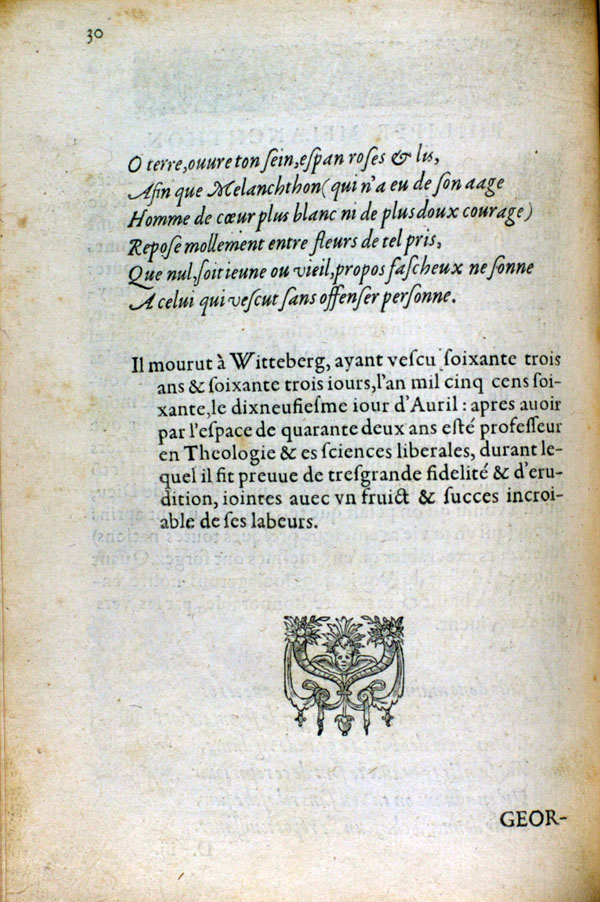 30
O terre, ouure ton sein, espan roses & lis,
Afin que Melanchthon (qui n'a eu de son aage
Homme de cœur plus blanc ni de plus doux courage)
Repose mollement entre fleurs de tel pris,
Que nul, soit ieune ou vieil, propos fascheux ne sonne
A celui qui vescut sans offenser personne.
Il mourut à Witteberg, ayant vescu soixante trois
ans & soixante trois iours, l'an mil cinq cens soi-
xante, le dixneufiesme iour d'Auril : apres auoir
par l'espace de quarante deux ans esté professeur
en Theologie & es sciences liberales, durant le-
quel il fit preuue de tresgrande fidelité & d'eru-
dition, iointes auec vn fruict & succes incroi-
able de ses labeurs.
GEOR-